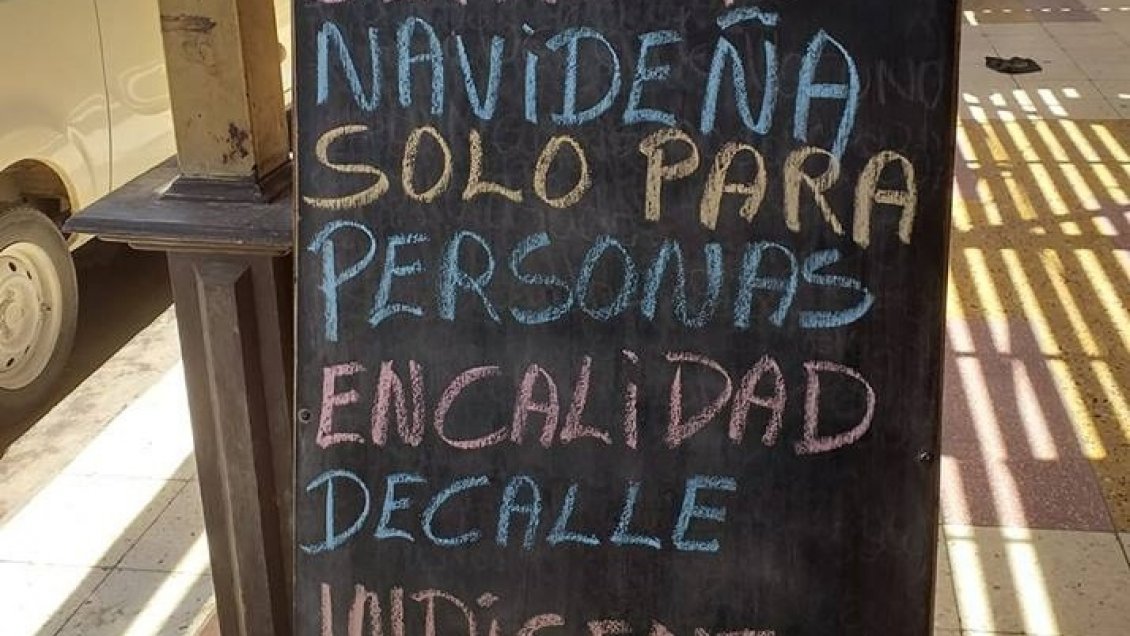 NAViDEÑA
SOLO PARA
PERSONAS
ENCALiDAD
DECALLE
INDiGENTE